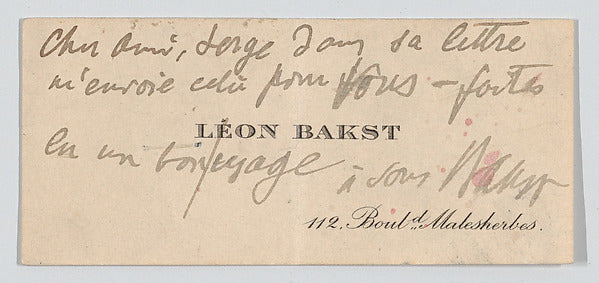 Cher ami, Serge dans sa lettre
m'envoie celà pour vous – faites
LÉON BAKST
en un bon usage
à vous Bakst
112, Boul.d Malesherbes.